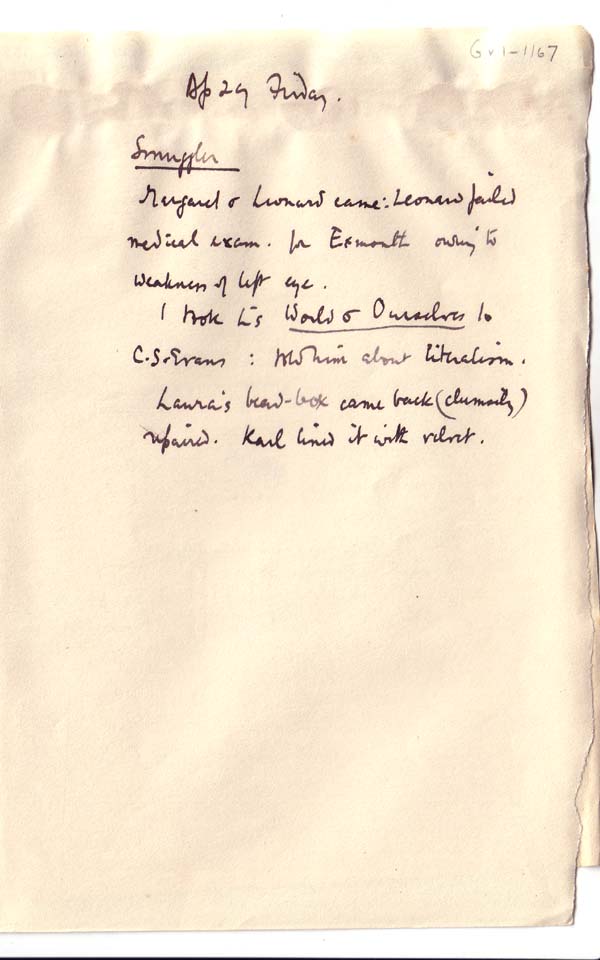 GV1-1167
Ap 29 Friday.
Smuggler
Margaret & Leonard came: Leonard failed
medical exam. for Exmouth owing to
weakness of left eye.
I took L's World & Ourselves to
C.S. Evans: told him about literalism.
Laura's bead-box came back (clumsily)
repaired. Karl lined it with velvet.